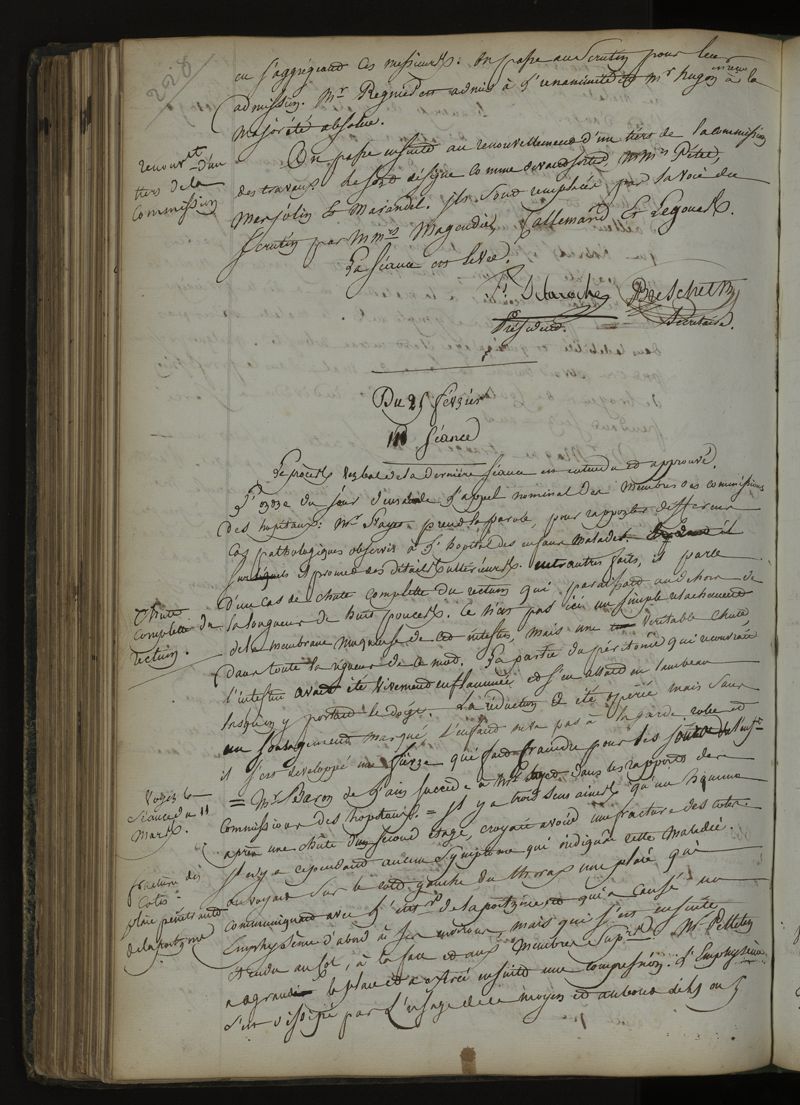 208
en s'aggrégeant ces messieurs. On passe au scrutin pour leur
admission. Mr Regnier est admis à l'unanimité et Mr hugon à la
Majorité absolue.
renouvt d'un
tiers de la
Commission
On passe ensuite au renouvellement d'un tiers de la commission
des travaux. Le sort désigne comme devant sortir, MMrs
Marjolin & Marandel. ils sont remplacés par la voie du
Scrutin par MMrs Magendie, Lallemand & Legouas.
La Séance est levée.
Delaroche Breschet
Président. Secrétaire.
Du 25 février
Séance
Le procès verbal de la dernière séance est entendu et approuvé.
L'ordre du jour l'appel nominal des Membres des commissions
des hopitaux: Mr prend la parole, pour rapporter différens
cas pathologiques observés à l'hopital des enfans Malades, il
et promet des détails ultérieurs. entr'autres faits, il parle
Chute
complette du
rectum.
d'un cas de chute complette du rectum qui paraissait au dehors de
la longueur de huit pouces. Ce n'est pas ici un simple relachement
de la membrane Muqueuse de cet intestin, mais une véritable chute,
dans toute la rigueur de ce mot. La partie du péritoine qui recouvrait
l'intestin avait été vivement enflammée et s'en allait en lambeau
lorsqu'on y portait le doigt. La réduction a été opérée mais sans
un soulagement marqué. L'enfant
il s'est développé une fièvre qui fait craindre pour les
Voyez la
Séance du 11
Mars.
= Mr Baron de succède à Mr dans les rapports des
Commissions des hopitaux. = il y a trois semaines qu'un homme
après une chute d'un second étage, croyait avoir une fracture des côtes
fracture des
Cotes
plaie pénétrante
de la poitrine
Il n'y a cependant aucun Symptome qui indiquât cette Maladie.
on voyait sur le coté gauche du thorax une plaie qui
communiquait avec l'intr de la poitrine et qui a causé un
Emphysème d'abord à ses environs, mais qui s'est ensuite
étendu au col, à la face et aux Membres Supérs. Mr Pelletan
a agrandi la plaie et a exercé ensuite une compression. L'Emphysème
s'est dissipé par l'usage de ce moyen et au bout de 4 ou 5